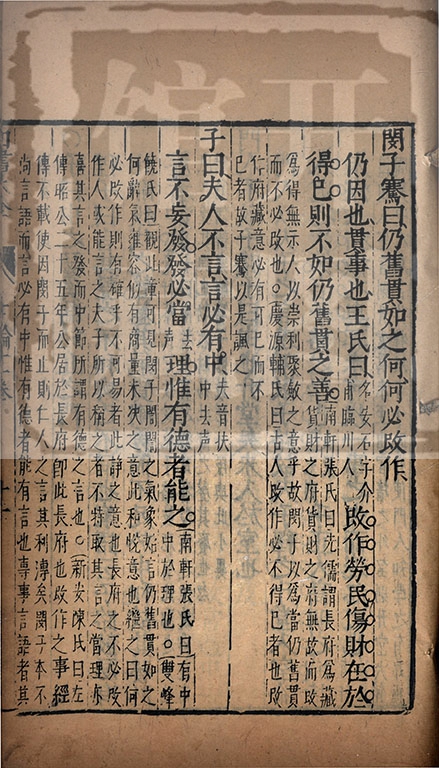 閔子騫曰仍舊貫如之何何必改作
仍因也貫事也王氏曰名安石字介甫臨川人改作勞民傷財在於
得已則不如仍舊貫之善南軒張氏曰先儒謂長府為藏貨財之府貨財之府無故而改
為得無示人以崇利聚斂之意乎故閔子以為當仍舊貫
而不必改也慶源輔氏曰古人改作必不得已者也改
作府藏意必有可已而不
已者故子騫以是諷之
子曰夫人不言言必有中夫音扶中去聲
言不妄發發必當去聲理惟有德者能之南軒張氏曰有中中於理也雙峰
饒氏曰觀此重可見閔子誾誾之氣象始言仍舊貫如之
何辭氣雍容似有商量未決之意此和悅意也繼之曰何
必改作則有確乎不可易者此諍之意也長府之不必改
作人次能言之夫子所以稱之者不特取其言之當理亦
喜其言之發而中節所謂有德之言也新安陳氏曰左
傳昭公二十五年公居於長府即此長府也改作之事經
傳不載使因閔子而止則仁人之言其利溥矣閔子本不
尚言語而言必有中惟有德者能有言也專事言語者其